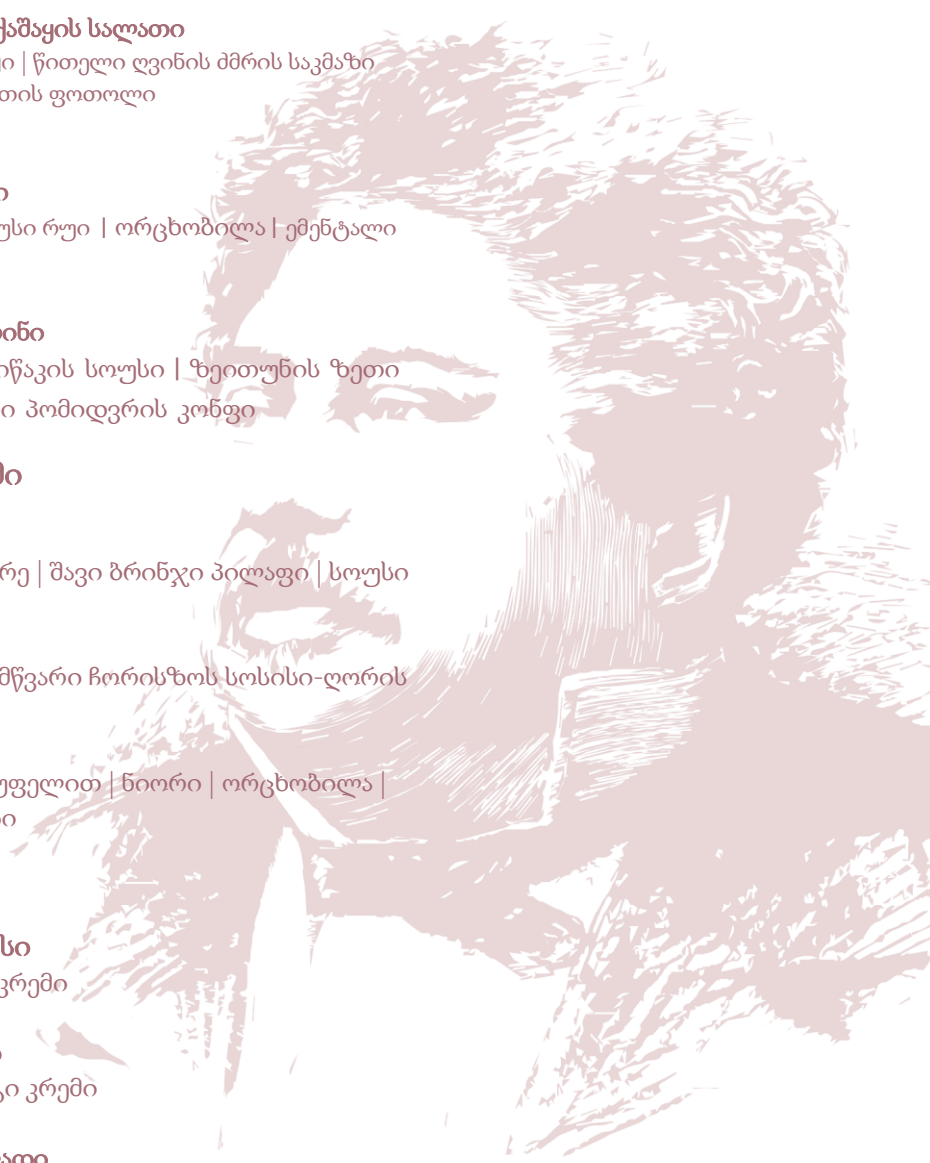 ქაშაყის სალათი
ი | წითელი ღვინის ძმრის საკმაზი
თის ფოთოლი
ი
უსი რუი | ორცხობილა | ემენტალი
ინი
იწაკის სოუსი | ზეითუნის ზეთი
ი პომიდვრის კონფი
მი
რე | შავი ბრინჯი პილაფი | სოუსი
მწვარი ჩორისზოს სოსისი-ღორის
უფელით | ნიორი | ორცხობილა |
ი
სი
კრემი
ი კრემი